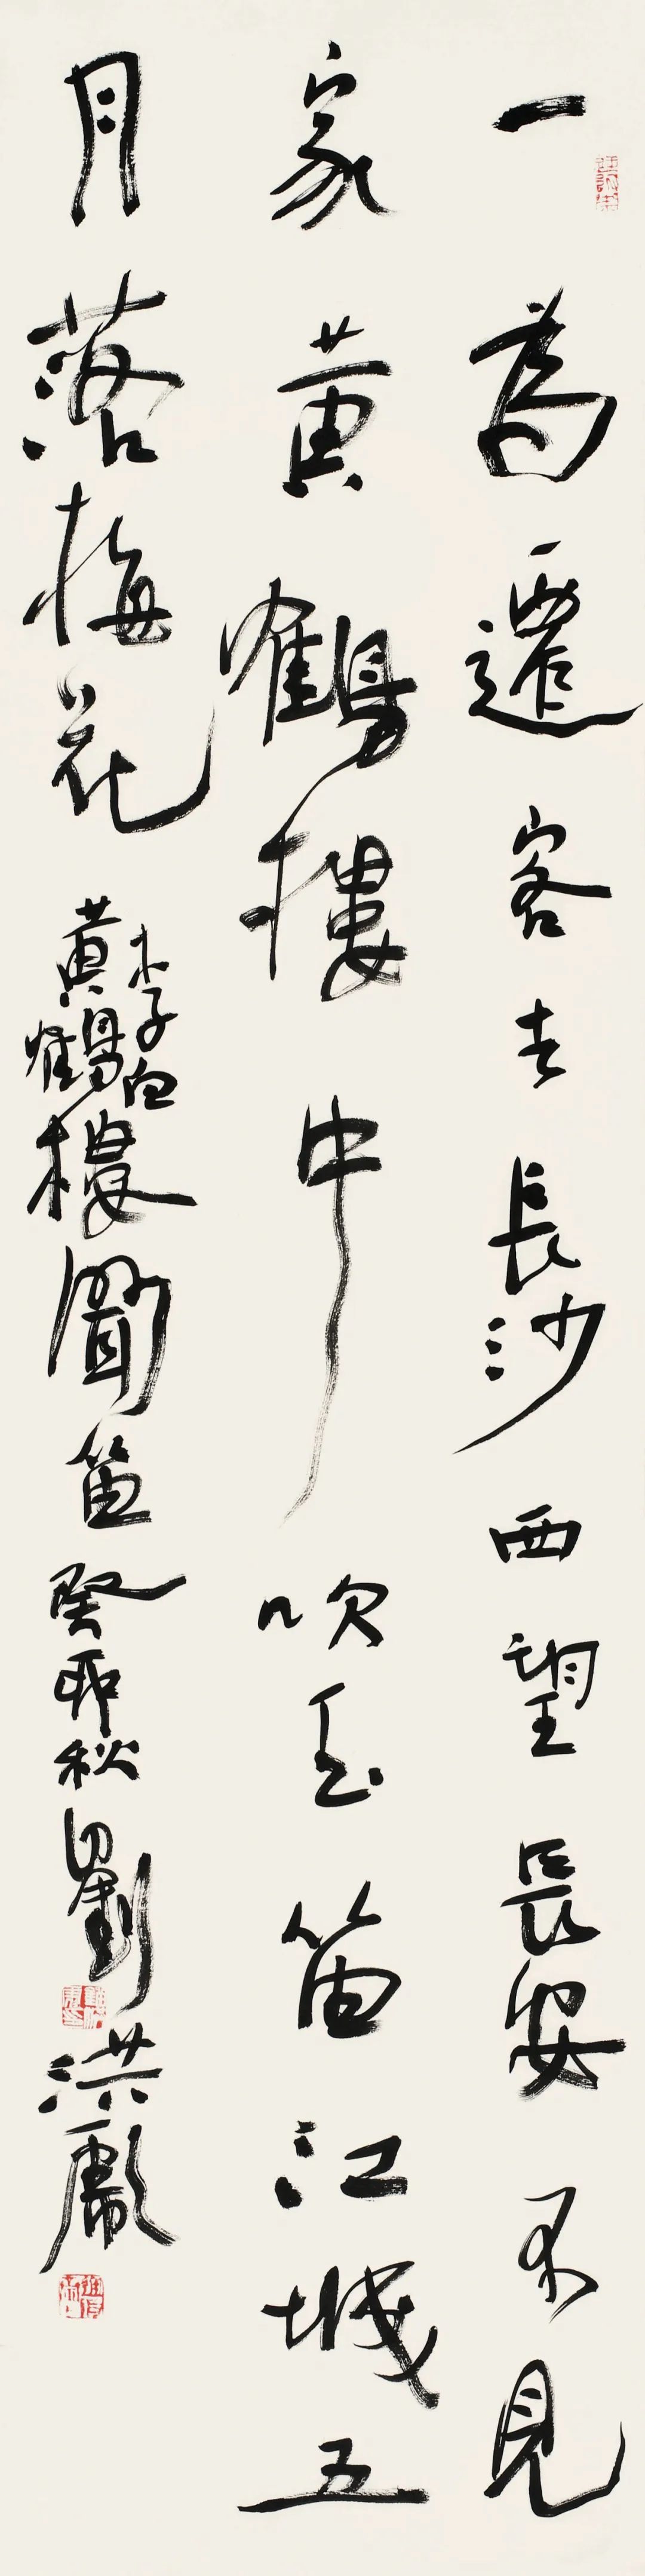 一為遷客去長沙西望長安不見
家黃鶴樓中吹玉笛江城五
月落梅花
李白
黃鶴樓聞笛癸卯秋劉洪彪